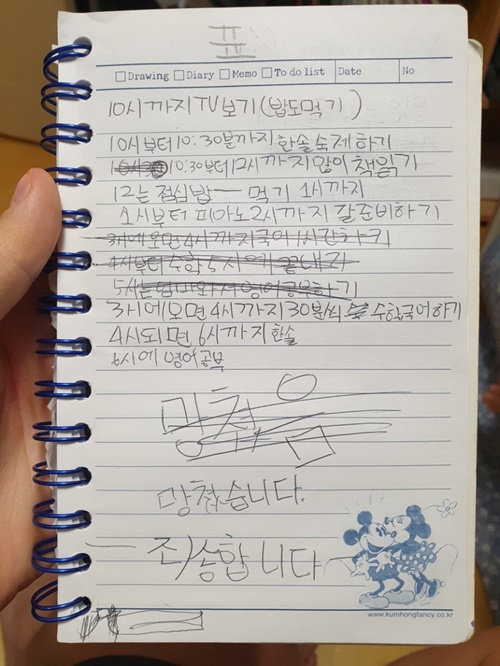 표
Drawing Diary Memo To do list Date No
10시까지 TV보기(밥도먹기)
10시부터10:30분까지 한솔숙제하기
10:30부터12시까지많이 책읽기
12는 점심밥 ― 먹기 1시까지
1시부터 피아노2시까지 갈준비하기
3시에오면4시까지국어1시간하기
4시부터수학5시에끝내고
5시는엄마와서영어공부하기
3시에오면4시까지30분씩 수학국어하기
4시되면6시까지한솔
6시에영어공부
망쳤
망쳤습니다.
죄송합니다
www.kumhongfancy.co.kr